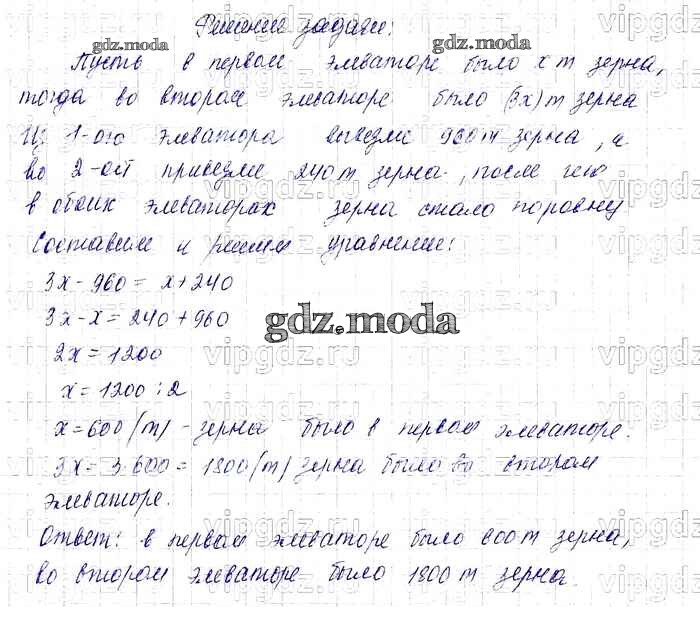 Решение задачи:
Пусть в первом элеваторе было x т зерна,
тогда во втором элеваторе было (3x) т зерна
Из 1-ого элеватора вывезли 960 т зерна, а
во 2-ой привезли 240 т зерна, после чего
в обоих элеваторах зерна стало поровну
Составим и решим уравнение:
3x - 960 = x + 240
3x - x = 240 + 960
gdz.moda
2x = 1200
x = 1200 : 2
x = 600 (т) - зерна было в первом элеваторе.
3x = 3·600 = 1800 (т) зерна было во втором
элеваторе.
Ответ: в первом элеваторе было 600 т зерна,
во втором элеваторе было 1800 т зерна.
gdz.moda
gdz.moda
vipgdz.ru